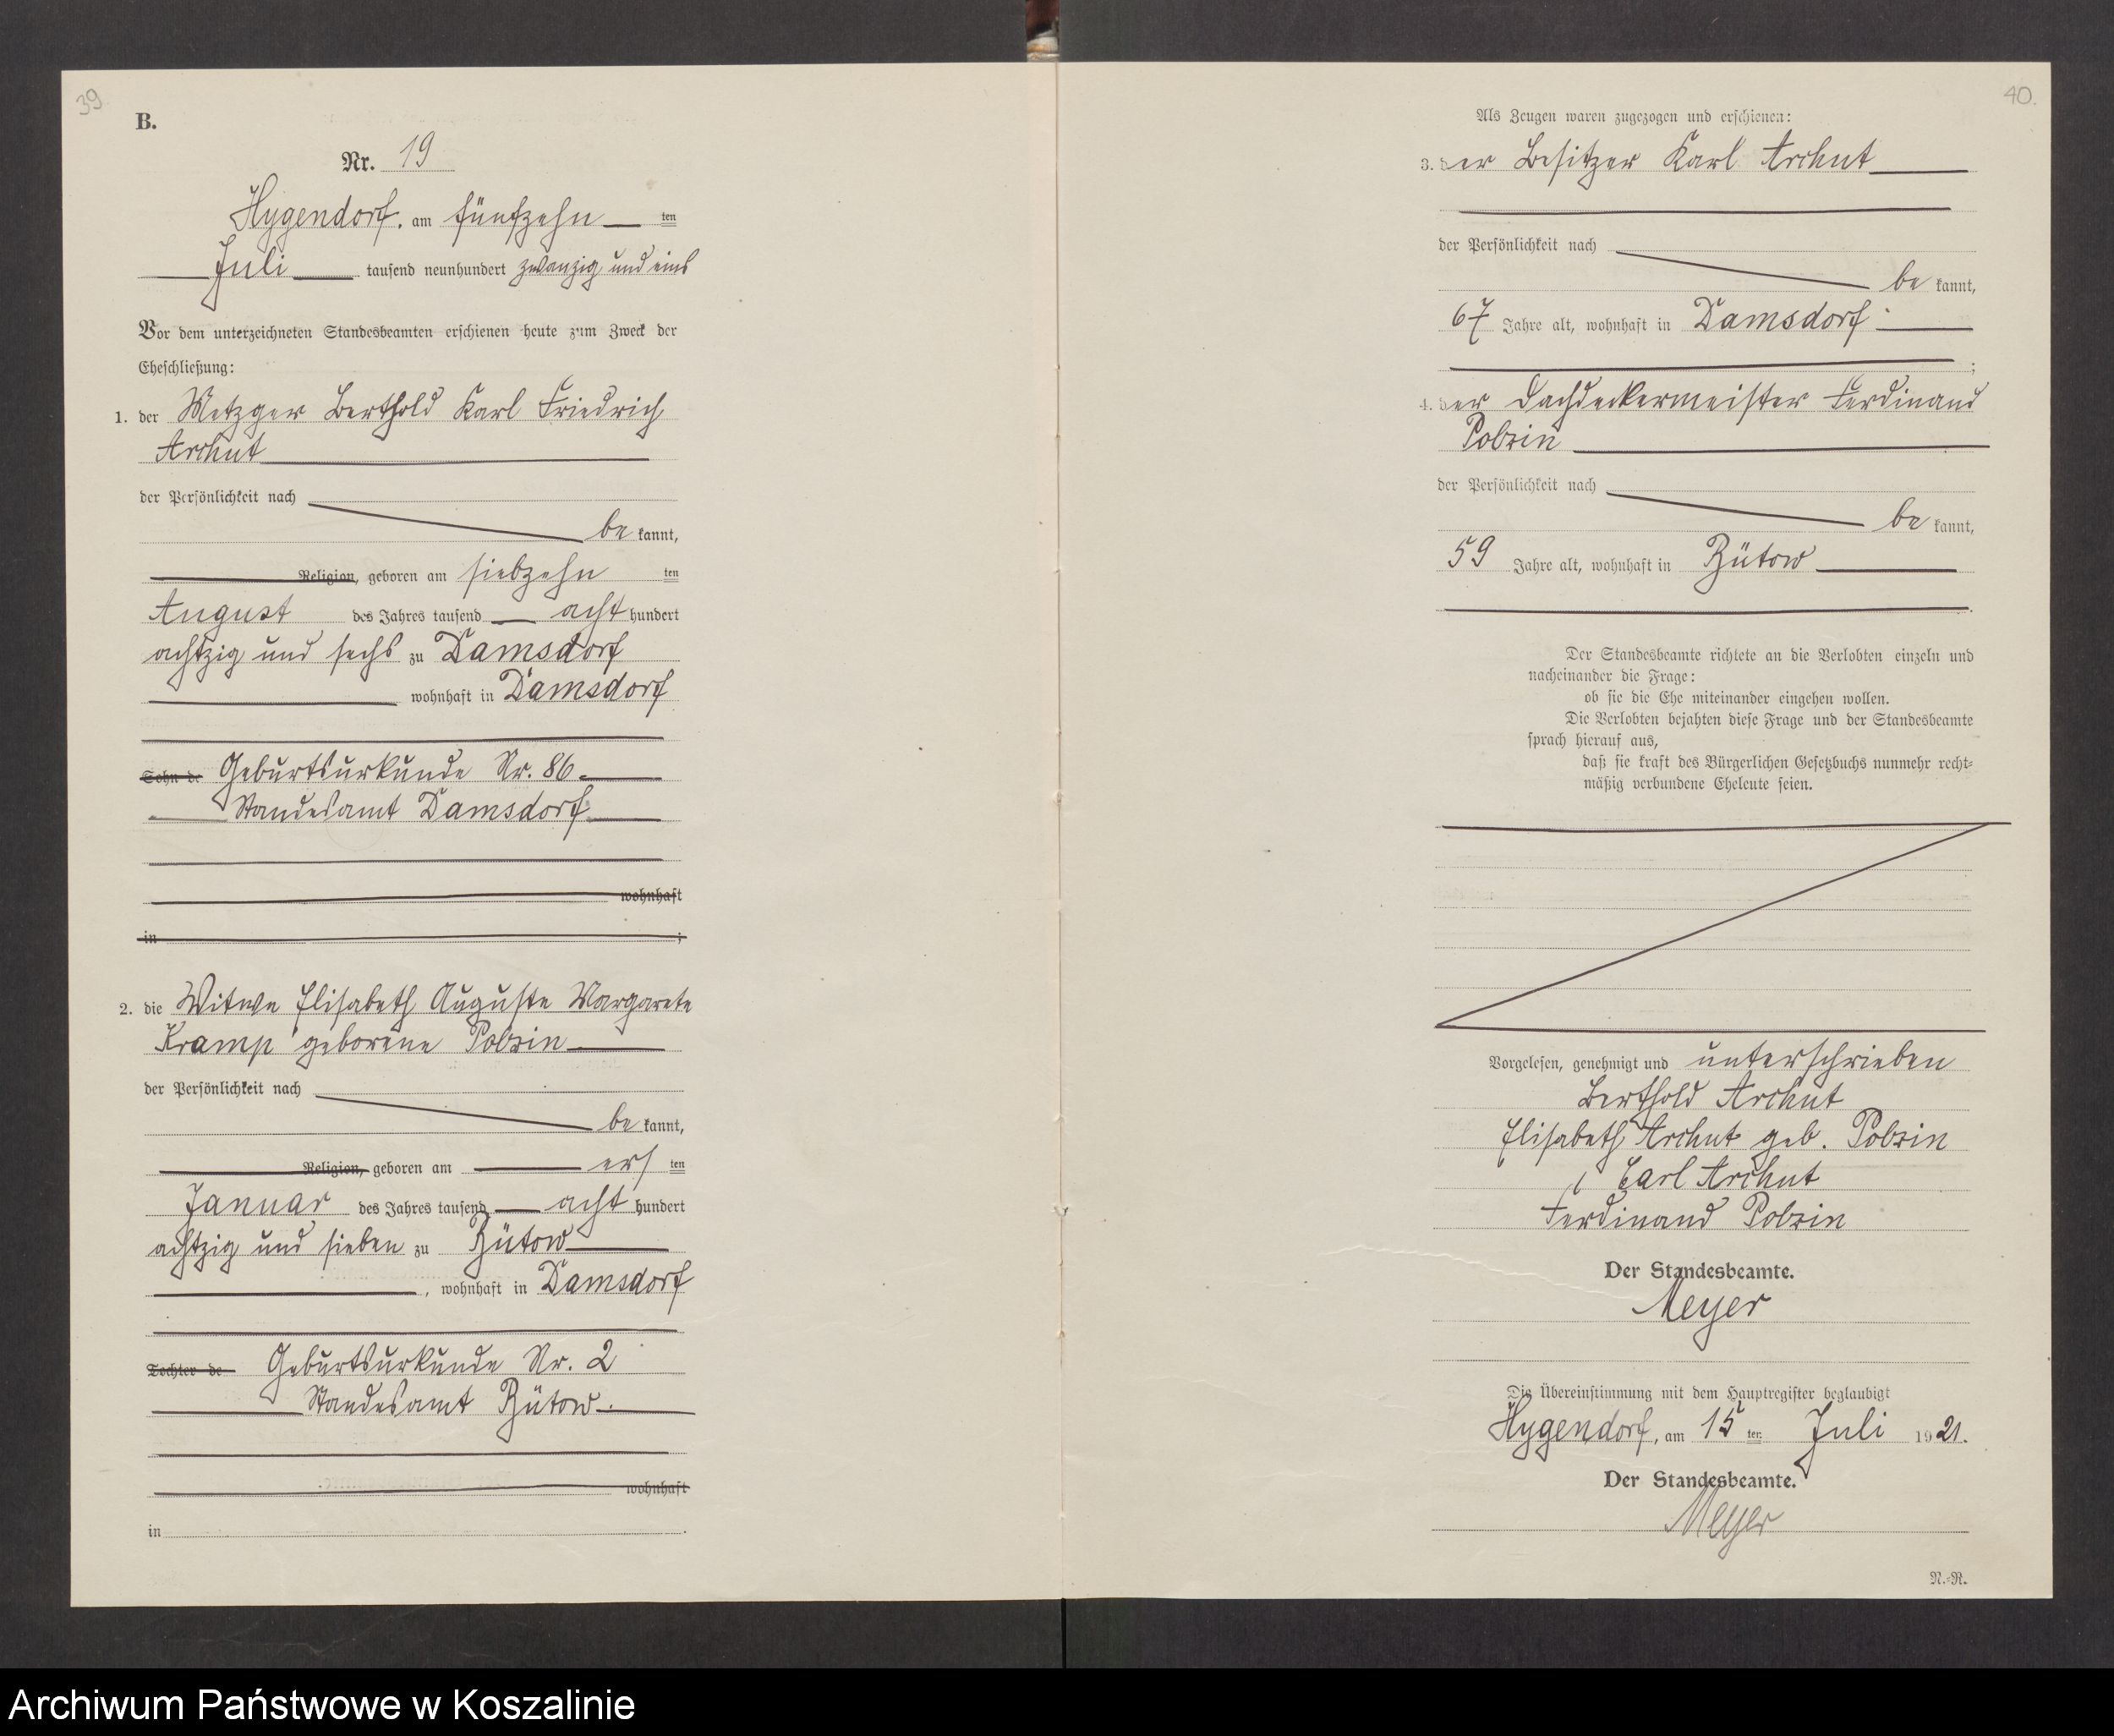 39
B.
Nr. 19
Hygendorf, am fünfzehn ten
Juli tausend neunhundert zwanzig und eins
Vor dem unterzeichneten Standesbeamten erschienen heute zum Zweck der
Eheschließung:
1. der Metzger Berthold Karl Friedrich
Archut
der Persönlichkeit nach
be kannt,
Religion, geboren am siebzehn ten
August des Jahres tausend acht hundert
achtzig und sechs zu Damsdorf
wohnhaft in Damsdorf
Sohn de Geburtsurkunde Nr. 86.
Standesamt Damsdorf.
wohnhaft
in ;
2. die Witwe Elisabeth Auguste Margarete
Kramp geborene Pobzin
der Persönlichkeit nach
be kannt,
Religion, geboren am ers ten
Januar des Jahres tausend acht hundert
achtzig und sieben zu Bütow
, wohnhaft in Damsdorf
Tochter de Geburtsurkunde Nr. 2
Standesamt Bütow.
wohnhaft
in .
40.
Als Zeugen waren zugezogen und erschienen:
3. der Besitzer Karl Archut
der Persönlichkeit nach
be kannt,
67 Jahre alt, wohnhaft in Damsdorf
;
4. der Dachdeckermeister Ferdinand
Pobzin
der Persönlichkeit nach
be kannt,
59 Jahre alt, wohnhaft in Bütow
.
Der Standesbeamte richtete an die Verlobten einzeln und
nacheinander die Frage:
ob sie die Ehe miteinander eingehen wollen.
Die Verlobten bejahten diese Frage und der Standesbeamte
sprach hierauf aus,
daß sie kraft des Bürgerlichen Gesetzbuchs nunmehr recht-
mäßig verbundene Eheleute seien.
Vorgelesen, genehmigt und unterschrieben
Berthold Archut
Elisabeth Archut geb. Pobzin
Carl Archut
Ferdinand Pobzin
Der Standesbeamte.
Meyer
Die Übereinstimmung mit dem Hauptregister beglaubigt
Hygendorf, am 15 ten Juli 1921.
Der Standesbeamte.
Meyer
N.-R.
Archiwum Państwowe w Koszalinie